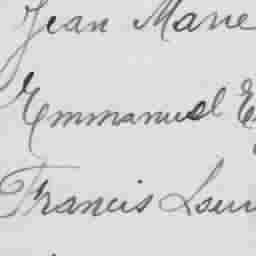 Jean Marie
Emmanuel E
Francis Lou